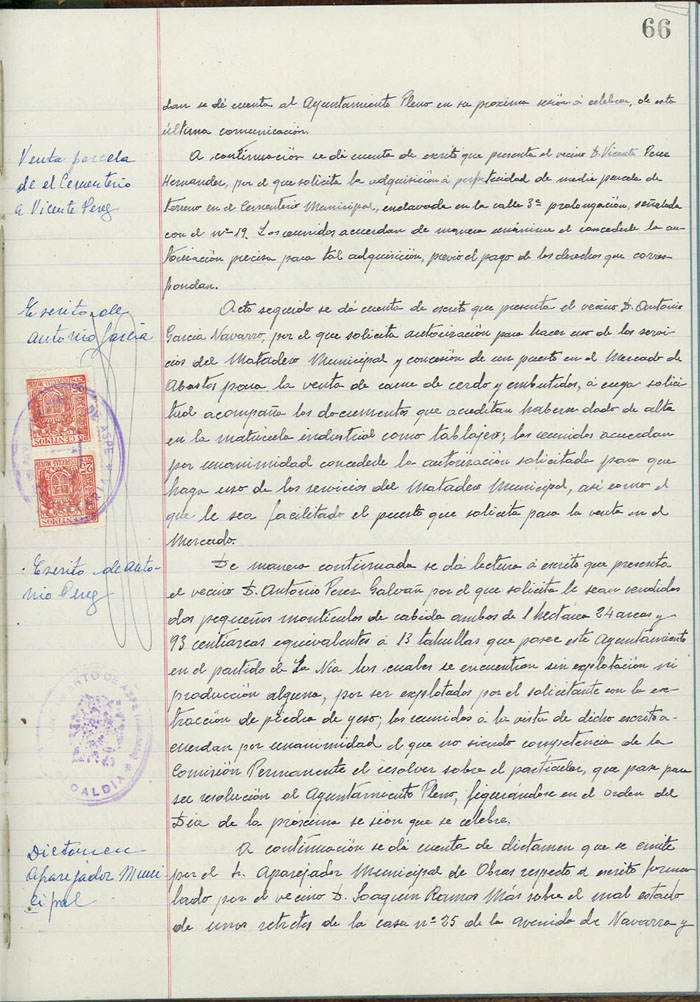 66
dan se dé cuenta al Ayuntamiento Pleno en su próxima sesión á celebrar, de esta
última comunicación.
Venta parcela
de el Cementerio
a Vicente Perez
A continuación se dá cuenta de escrito que presenta el vecino D. Vicente Perez
Hernandez, por el que solicita la adquisición á perpetuidad de media parcela de
terreno en el Cementerio Municipal, enclavada en la calle 3ª prolongación, señalada
con el nº 19. Los reunidos acuerdan de manera unánime el concederle la au-
torización precisa para tal adquisición, previo el pago de los derechos que corres-
pondan.
Escrito de
Antonio García
Acto seguido se dá cuenta de escrito que presenta el vecino D. Antonio
García Navarro, por el que solicita autorización para hacer uso de los servi-
cios del Matadero Municipal y concesión de un puesto en el Mercado de
Abastos para la venta de carne de cerdo y embutidos, á cuya solici-
tud acompaña los documentos que acreditan haberse dado de alta
en la matricula industrial como tablajero; los reunidos acuerdan
por unanimidad concederle la autorización solicitada para que
haga uso de los servicios del Matadero Municipal, así como el
que le sea facilitado el puesto que solicita para la venta en el
Mercado.
Escrito de Anto-
nio Perez
De manera continuada se dá lectura á escrito que presenta
el vecino D. Antonio Perez Galvañ por el que solicita le sean vendidos
dos pequeños montículos de cabida ambos de 1 hectárea 24 areas y
93 centiareas equivalentes á 13 tahullas que posee este Ayuntamiento
en el partido de La Nia los cuales se encuentran sin explotación ni
producción alguna, por ser explotados por el solicitante con la ex-
tracción de piedra de yeso; los reunidos á la vista de dicho escrito a-
cuerdan por unanimidad el que no siendo competencia de la
Comisión Permanente el resolver sobre el particular, que pase para
su resolución al Ayuntamiento Pleno, figurándose en el orden del
Día de la próxima se sión que se celebre.
Dictamen
Aparejador Muni
cipal
A continuación se dá cuenta de dictamen que se emite
por el Sr. Aparejador Municipal de Obras respecto á escrito formu-
lado por el vecino D. Joaquín Ramos Más sobre el mal estado
de unos retretes de la casa nº 25 de la avenida de Navarra y
25 CENTIMOS
25 CENTIMOS
DE ASPE
ALCALDIA